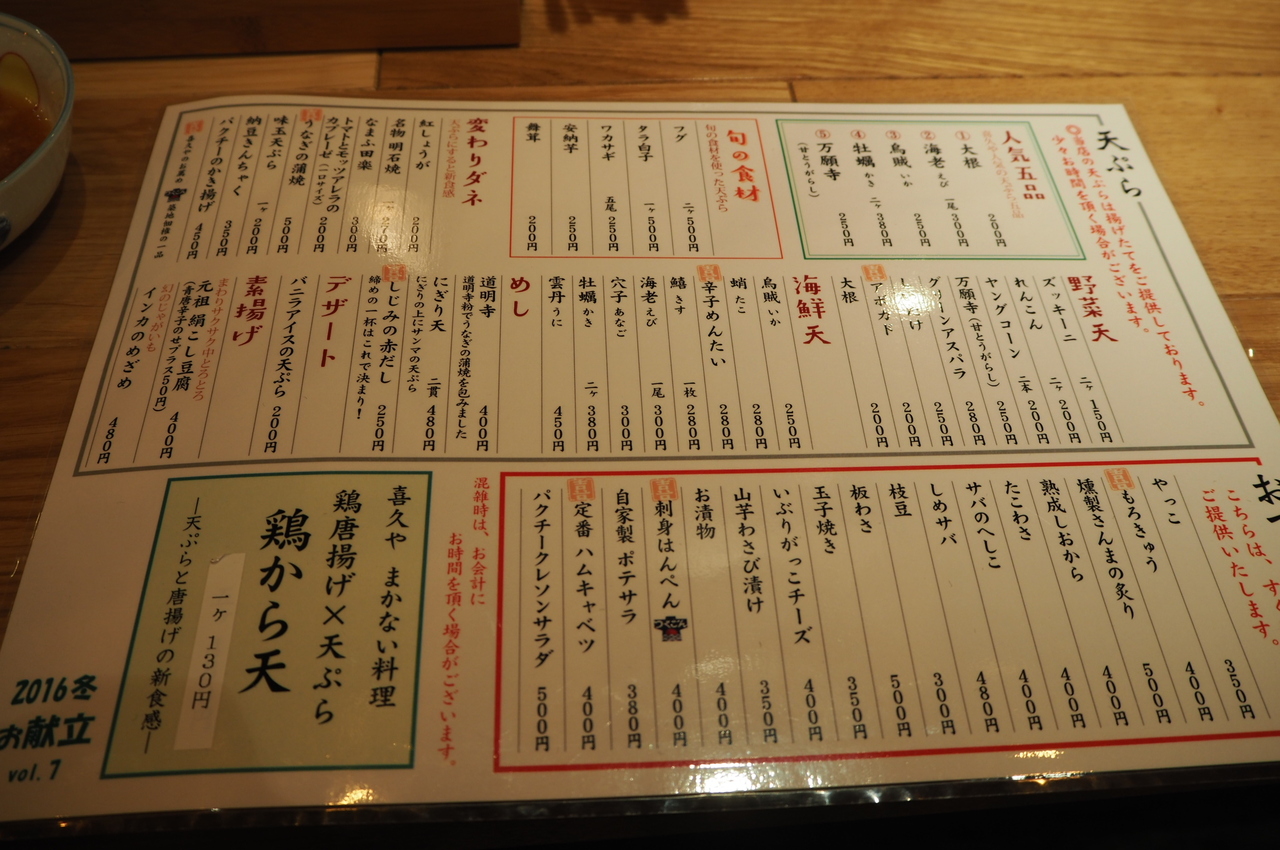 天ぷら
当店の天ぷらは揚げたてをご提供しております。
少々お時間を頂く場合がございます。
人気五品
① 大根 200円
② 海老 えび 一尾 300円
③ 烏賊 いか 250円
④ 牡蠣 かき 二ヶ 380円
⑤ 万願寺 (甘とうがらし) 250円
旬の食材
旬の食材を使った天ぷら
フグ 二ヶ 500円
タラ白子 一ヶ 500円
ワカサギ 五尾 250円
安納芋 250円
舞茸 200円
変わりダネ
天ぷらにすると新食感
紅しょうが 200円
名物明石焼 一ヶ 270円
なまふ田楽 300円
トマトとモッツアレラの
カプレーゼ (一口サイズ) 200円
うなぎの蒲焼 500円
味玉天ぷら 200円
納豆きんちゃく 一ヶ 200円
パクチーのかき揚げ 350円
450円
築地相模の一品
野菜天
ズッキーニ 二ヶ 150円
れんこん 二ヶ 200円
ヤングコーン 二本 200円
万願寺 (甘とうがらし) 250円
グリーンアスパラ 280円
250円
アボカド 200円
大根 200円
海鮮天
烏賊 いか 250円
蛸 たこ 280円
辛子めんたい 280円
鱚 きす 一枚 280円
海老 えび 一尾 300円
穴子 あなご 300円
牡蠣 かき 二ヶ 380円
雲丹 うに 450円
めし
道明寺 400円
道明寺粉でうなぎの蒲焼を包みました
にぎり天 二貫 480円
にぎりの上にサンマの天ぷら
しじみの赤だし 250円
締めの一杯はこれで決まり!
デザート
バニラアイスの天ぷら 200円
素揚げ
まわりサクサク中とろとろ
元祖 絹こし豆腐 400円
(青唐辛子のせプラス50円)
幻のじゃがいも
インカのめざめ 480円
こちらは、す
ご提供いたします。
350円
やっこ 400円
もろきゅう 500円
燻製さんまの炙り 400円
熟成しおから 400円
たこわさ 400円
サバのへしこ 480円
しめサバ 300円
枝豆 500円
板わさ 350円
玉子焼き 400円
いぶりがっこチーズ 400円
山芋わさび漬け 350円
お漬物 400円
刺身はんぺん 400円
自家製 ポテサラ 380円
定番 ハムキャベツ 400円
パクチークレソンサラダ 500円
混雑時は、お会計に
お時間を頂く場合がございます。
喜久や まかない料理
鶏唐揚げ×天ぷら
鶏から天
一ヶ 130円
―天ぷらと唐揚げの新食感―
2016冬
お献立
vol.7